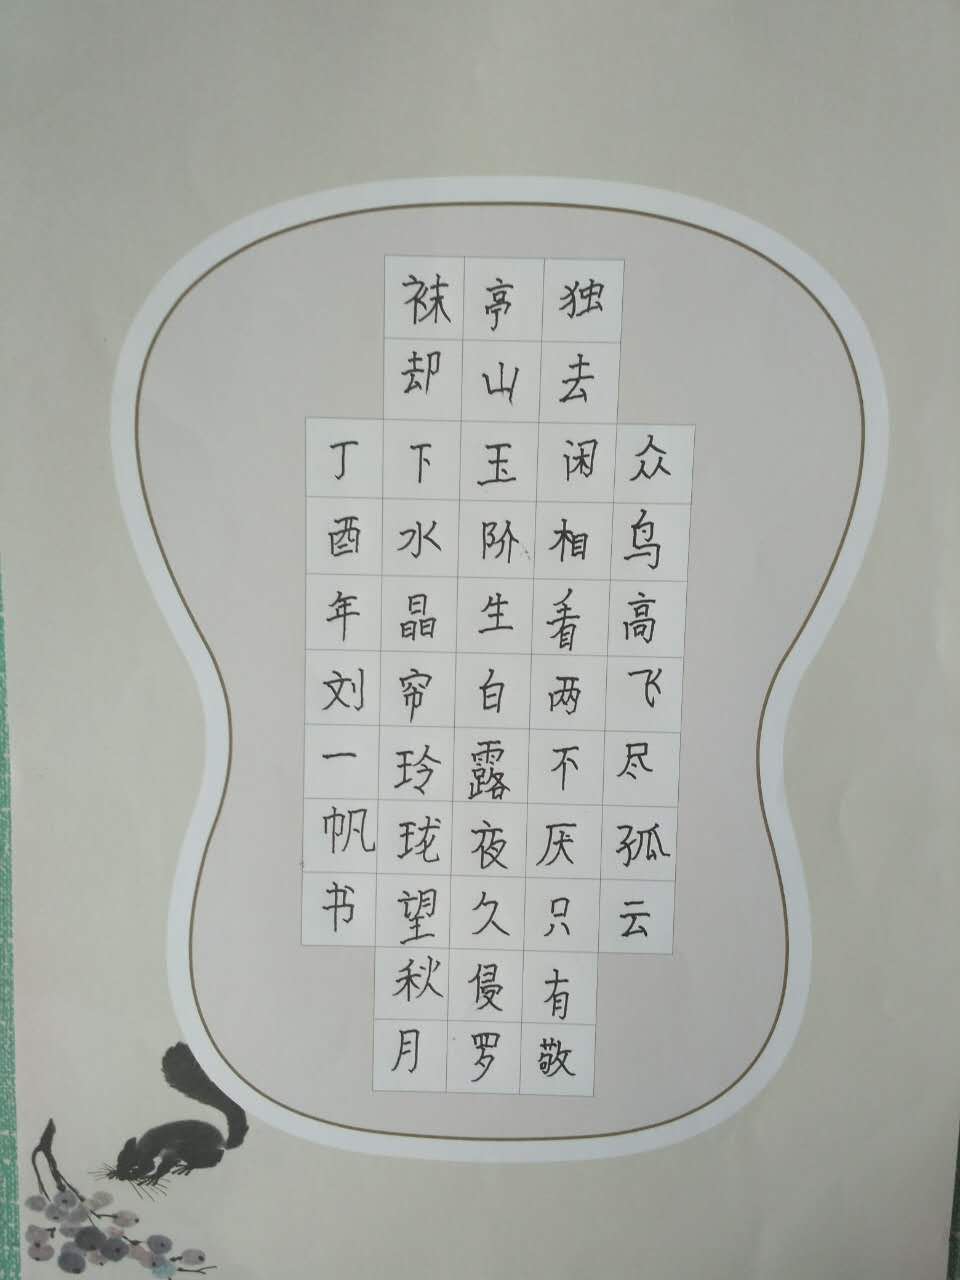 众鸟高飞尽孤云
独去闲相看两不厌只有敬
亭山玉阶生白露夜久侵罗
袜却下水晶帘玲珑望秋月
丁酉年刘一帆书